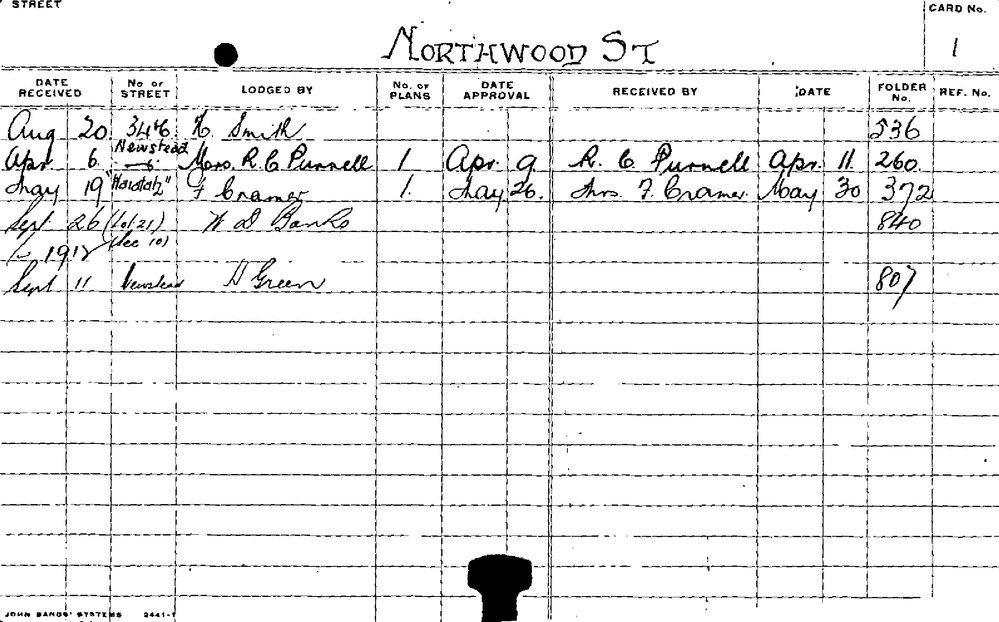 STREET
CARD No.
NORTHWOOD ST
1
DATE RECEIVED No of STREET LODGED BY No. of PLANS DATE APPROVAL RECEIVED BY DATE FOLDER No. REF. No.
Aug 20 34 Smith 536
Newstead
Apr. 6. Mrs. R. C. Purnell 1 Apr. 9. R. C. Purnell Apr. 11. 260.
May 19 F Cramer 1. May 26. Mrs. F. Cramer. May 30 372
Sept 26 (Lot 21) W D Banks 840
1912 (Sec 10)
Sept 11 Newstead H Green 807
JOHN SANDS' SYSTEMS 2441-1